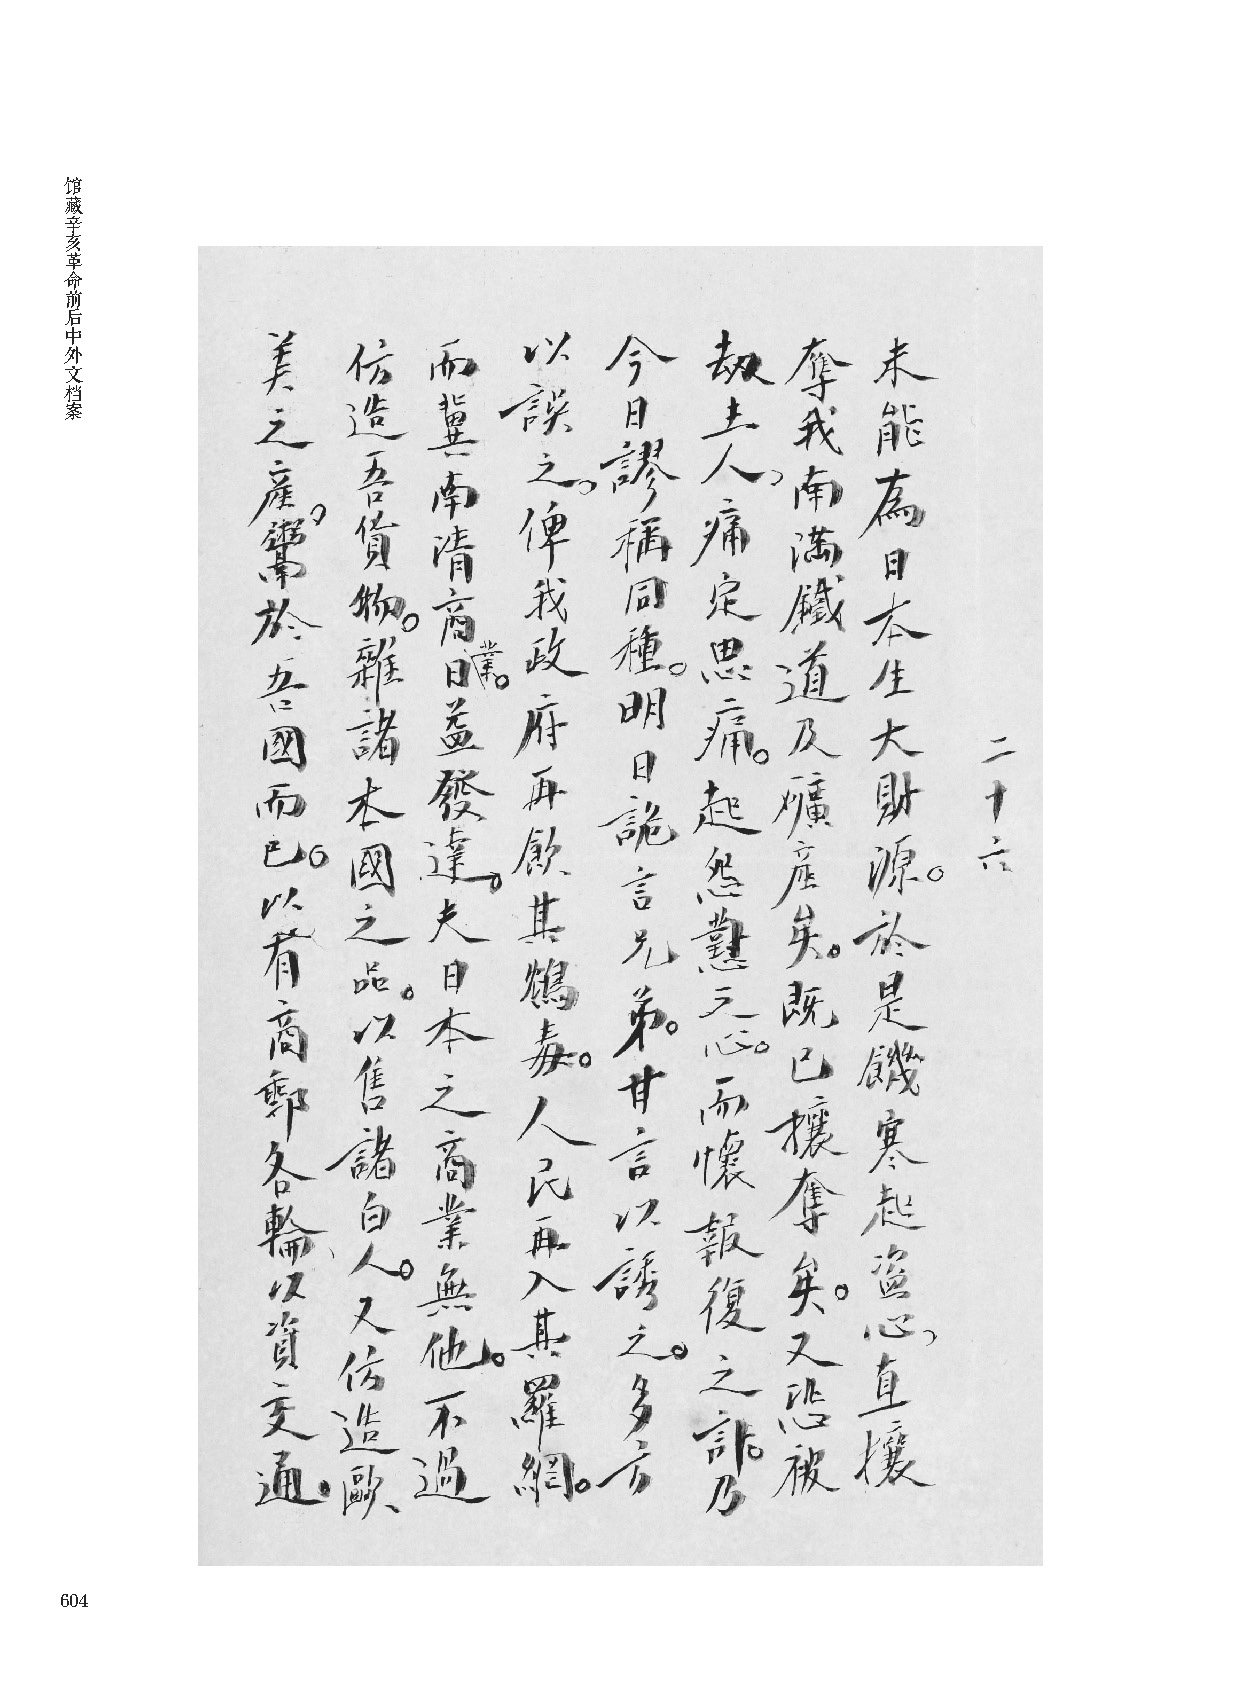 馆藏辛亥革命前后中外文档案
二十六
未能為日本生大財源。於是饑寒起盜心,直攘
奪我南滿鐵道及礦產矣。既已攘奪矣。又恐被
劫土人,痛定思痛。起怨懟之心。而懷報復之計。乃
今日謬稱同種。明日詭言兄弟。甘言以誘之。多方
以誤之。俾我政府再飲其鴆毒。人民再入其羅網。
而冀南清商業。日益發達。夫日本之商業無他。不過
仿造吾貨物。雜諸本國之品。以售諸白人。又仿造歐、
美之產,鬻於吾國而已。以有商郵各輪、以資交通。
604